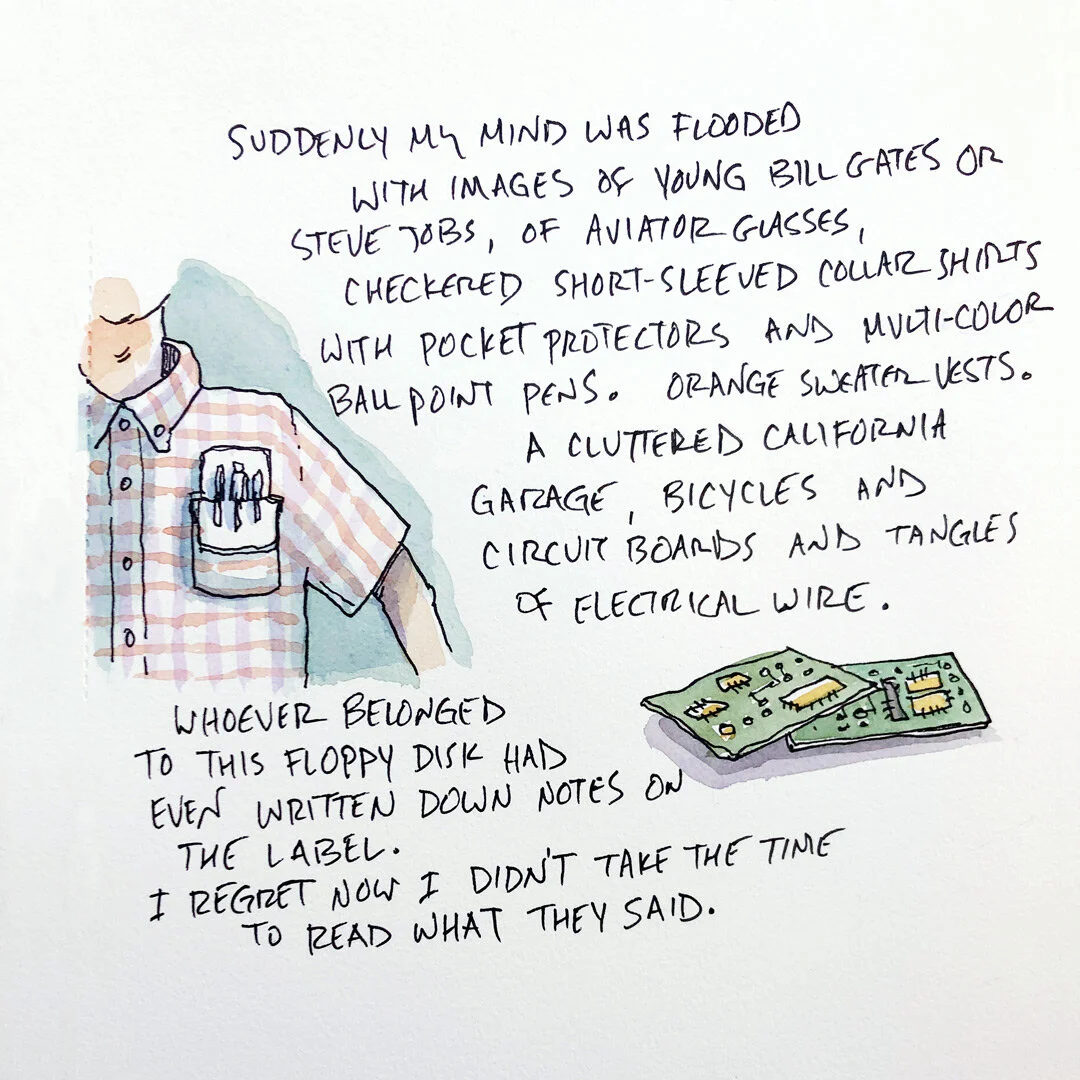 SUDDENLY MY MIND WAS FLOODED
WITH IMAGES OF YOUNG BILL GATES OR
STEVE JOBS, OF AVIATOR GLASSES,
CHECKERED SHORT-SLEEVED COLLAR SHIRTS
WITH POCKET PROTECTORS AND MULTI-COLOR
BALLPOINT PENS. ORANGE SWEATER VESTS.
A CLUTTERED CALIFORNIA
GARAGE, BICYCLES AND
CIRCUIT BOARDS AND TANGLES
OF ELECTRICAL WIRE.
WHOEVER BELONGED
TO THIS FLOPPY DISK HAD
EVEN WRITTEN DOWN NOTES ON
THE LABEL.
I REGRET NOW I DIDN'T TAKE THE TIME
TO READ WHAT THEY SAID.